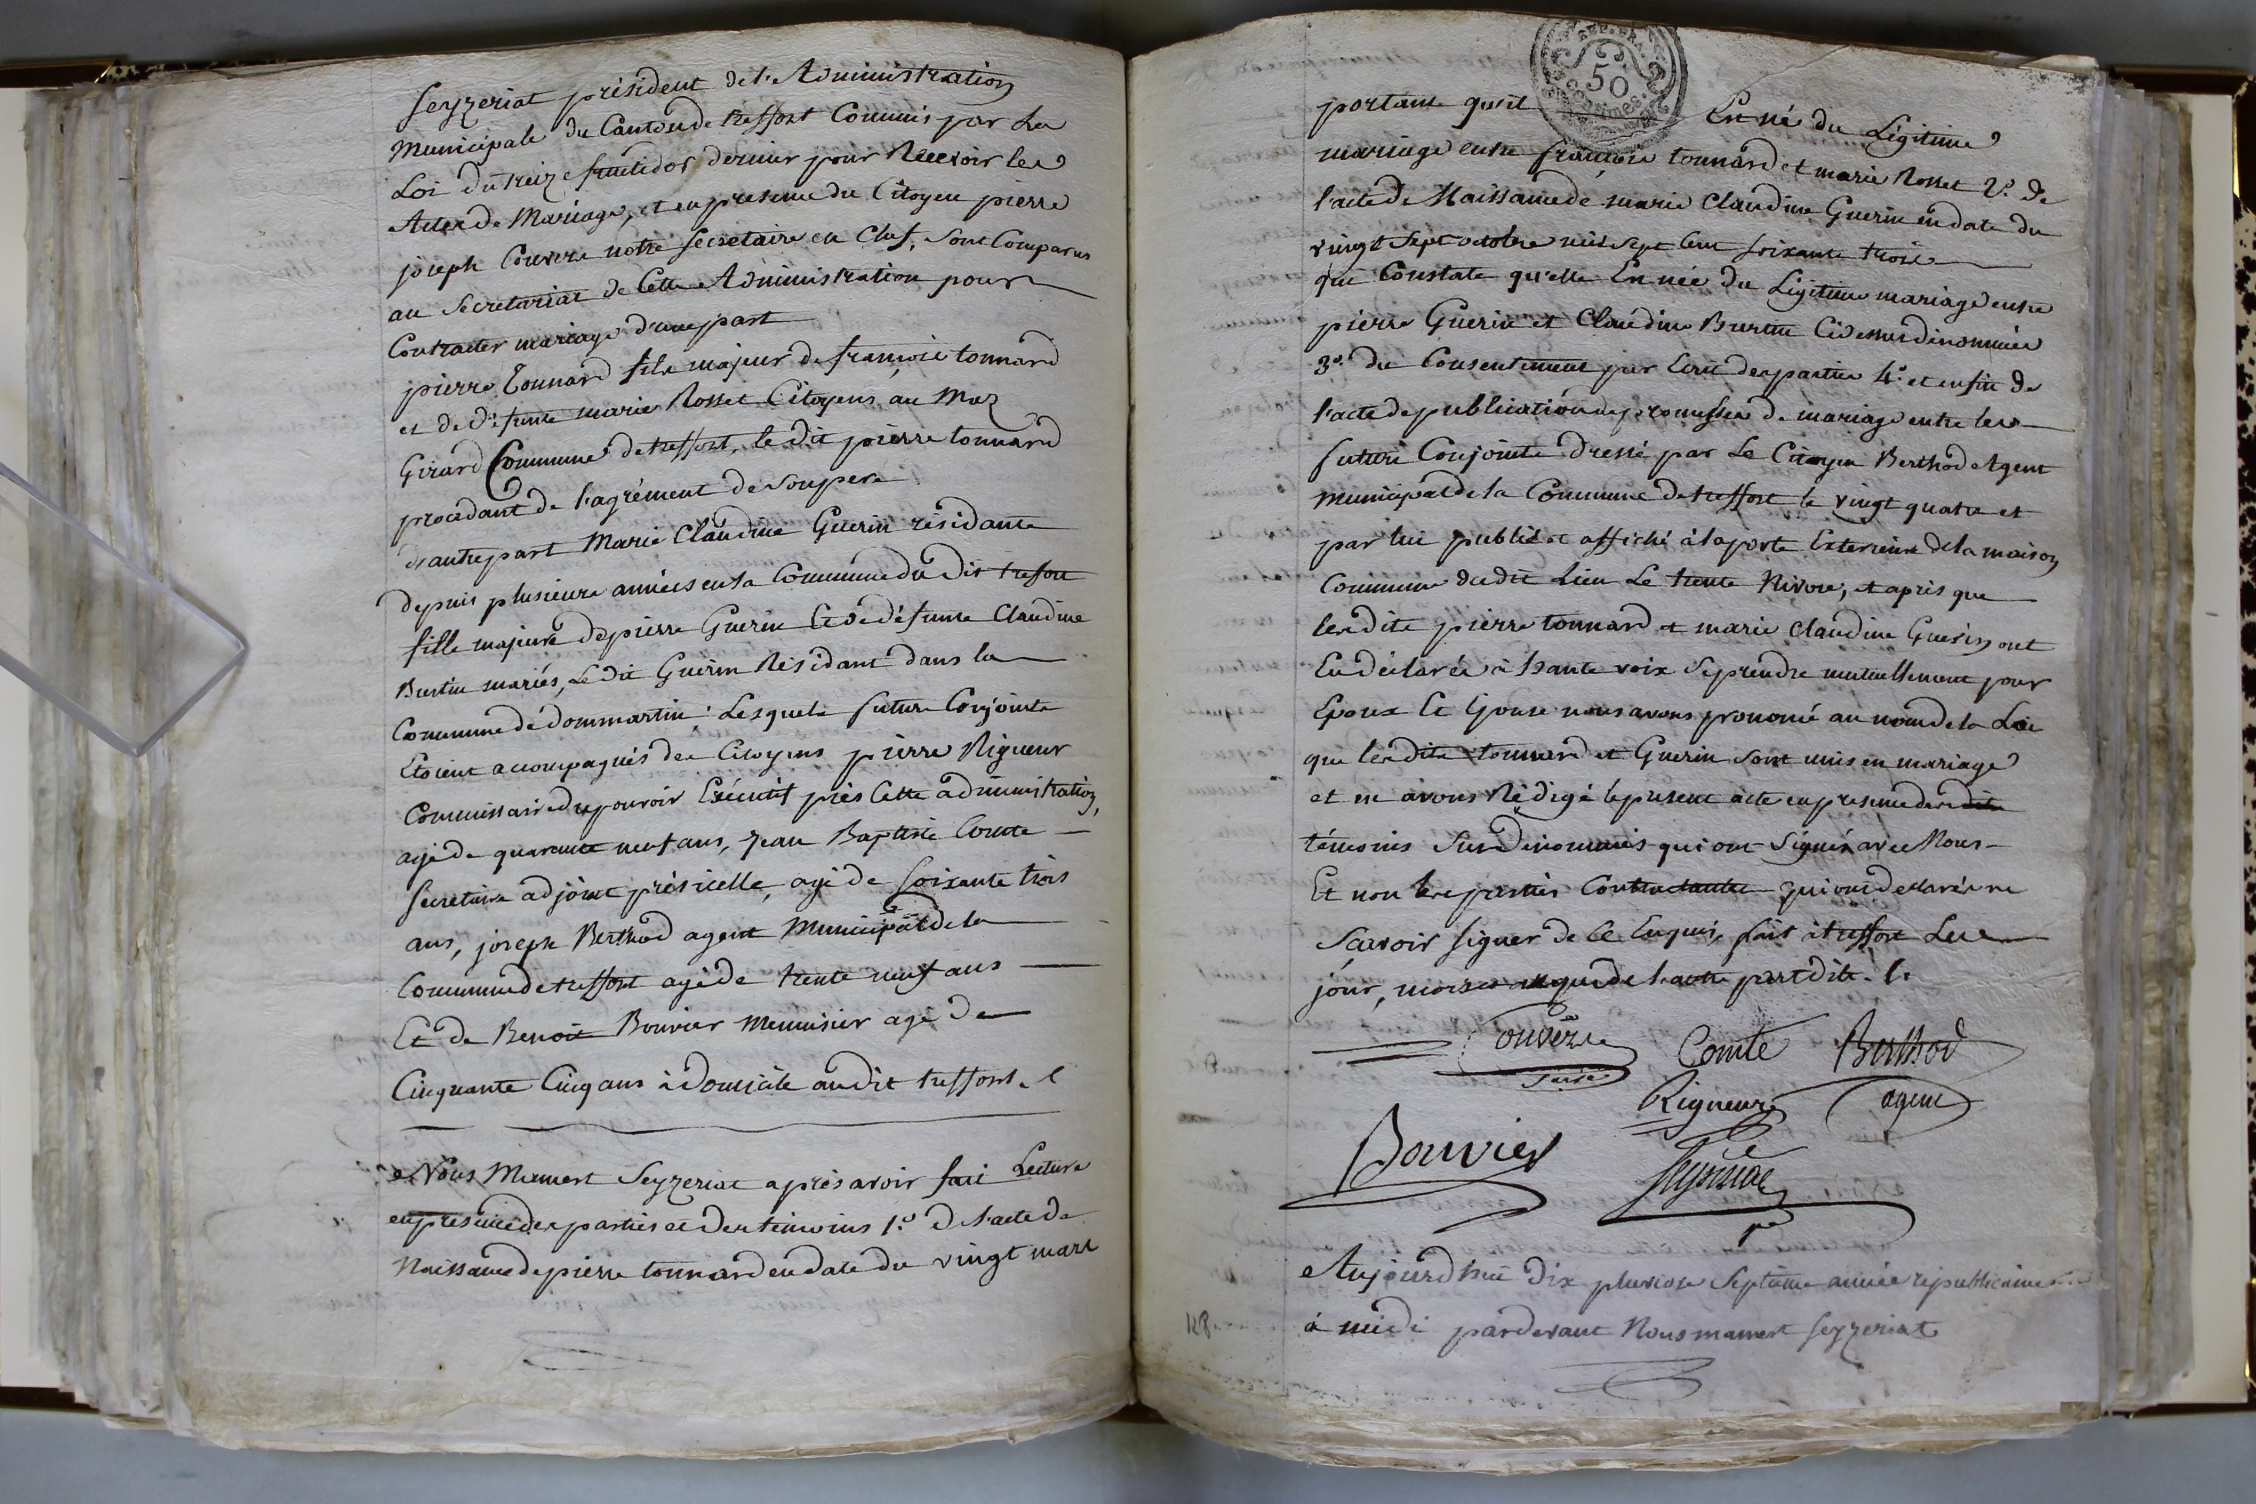 Seyzeriat président de l'Administration
Municipale du Canton de treffort Commis par La
Loi du treize fructidor dernier pour Recevoir les
Actes de Mariage, et en presence du Citoyen pierre
joseph Couvere notre Secretaire en Chef, sont Comparus
au Secretariat de Cette Administration pour
Contracter mariage d'une part
pierre tonnard fils majeur de françois tonnard
et de défunte marie Rosset Citoyens au Maz
Girard Commune de treffort, le dit pierre tonnard
procedant de l'agrément de son pere
d'autre part Marie Claudine Guerin résidante
depuis plusieurs années en la Commune du dit trefort
fille majeure de pierre Guerin Et de défunte Claudine
Burtin mariés, Le dit Guerin Residant dans la
Commune de dommartin. Lesquels futurs Conjoints
Etoient accompagnés des Citoyens pierre Rigueur
Commissaire du pouvoir Exécutif près Cette administration,
agé de quarante neuf ans, Jean Baptiste Comte
Secretaire adjoint près icelle, agé de soixante trois
ans, joseph Berthod agent Municipal de la
Commune de treffort agé de trente neuf ans
Et de Benoit Bouvier Menuisier agé de
Cinquante Cinq ans à domicile au dit treffort. /.
Nous Mamert Seyzeriat après avoir fait Lecture
en presence des parties et des temoins 1.º de l'acte de
Naissance de pierre tonnard en date du vingt mars
REP. FRA.
50
centimes
portant qu'il Est né du Légitime
mariage entre françois tonnard et marie Rosset 2.º de
l'acte de Naissance de marie Claudine Guerin en date du
vingt sept octobre mil sept cent soixante trois
qui Constate qu'elle Est née du Légitime mariage entre
pierre Guerin et Claudine Burtin Cidessus dénommés
3.º du Consentement par Ecrit des parties 4.º et enfin de
l'acte de publication de promesses de mariage entre les
futurs Conjoints dressé par Le Citoyen Berthod Agent
Municipal de la Commune de treffort le vingt quatre et
par lui publié et affiché à la porte Exterieure de la maison
Commune du dit Lieu Le trente Nivose, et après que
les dits pierre tonnard et marie Claudine Guerin ont
Eu déclarés à haute voix se prendre mutuellement pour
Epoux Et Epouse nous avons prononcé au nom de la Loi
que les dits tonnard et Guerin sont unis en mariage
et en avons Rédigé le present acte en presence des dits
témoins sus dénommés qui ont signés avec Nous
Et non les parties Contractantes qui ont déclarés ne
Sçavoir signer de Ce Enquis, fait à treffort Les
jour, mois et an que de haute part dits. /.
Couvere
Comte
Berthod
agent
Rigueur
Bouvier
Seyzeriat
pt
Aujourd'hui Dix pluviose Septième année républicaine
à midi pardevant Nous mamert Seyzeriat
128